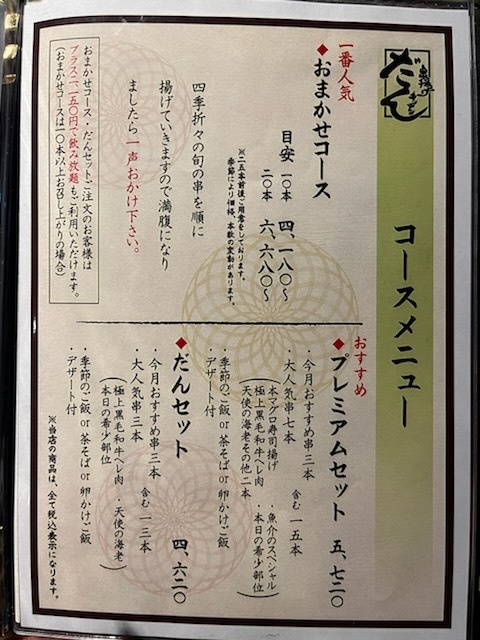 串揚げ
だん
コースメニュー
一番人気
◆おまかせコース
目安 一〇本 四、一八〇〜
二〇本 六、六八〇〜
※二五本前後ご用意をしております。
季節により価格、本数の変動があります。
四季折々の旬の串を順に
揚げていきますので満腹になり
ましたら一声おかけ下さい。
おまかせコース・だんセットご注文のお客様は
プラス二、一五〇円で飲み放題もご利用いただけます。
(おまかせコースは一〇本以上お召し上がりの場合)
おすすめ
◆プレミアムセット 五、七二〇
・今月おすすめ串三本 含む 一五本
・大人気串七本
(本マグロ寿司揚げ ・魚介のスペシャル
極上黒毛和牛ヘレ肉 ・本日の希少部位
天使の海老その他二本)
・季節のご飯 or 茶そば or 卵かけご飯
・デザート付
◆だんセット 四、六二〇
・今月おすすめ串三本 含む 一三本
・大人気串三本
(極上黒毛和牛ヘレ肉 ・天使の海老
本日の希少部位)
・季節のご飯 or 茶そば or 卵かけご飯
・デザート付
※当店の商品は、全て税込表示になります。